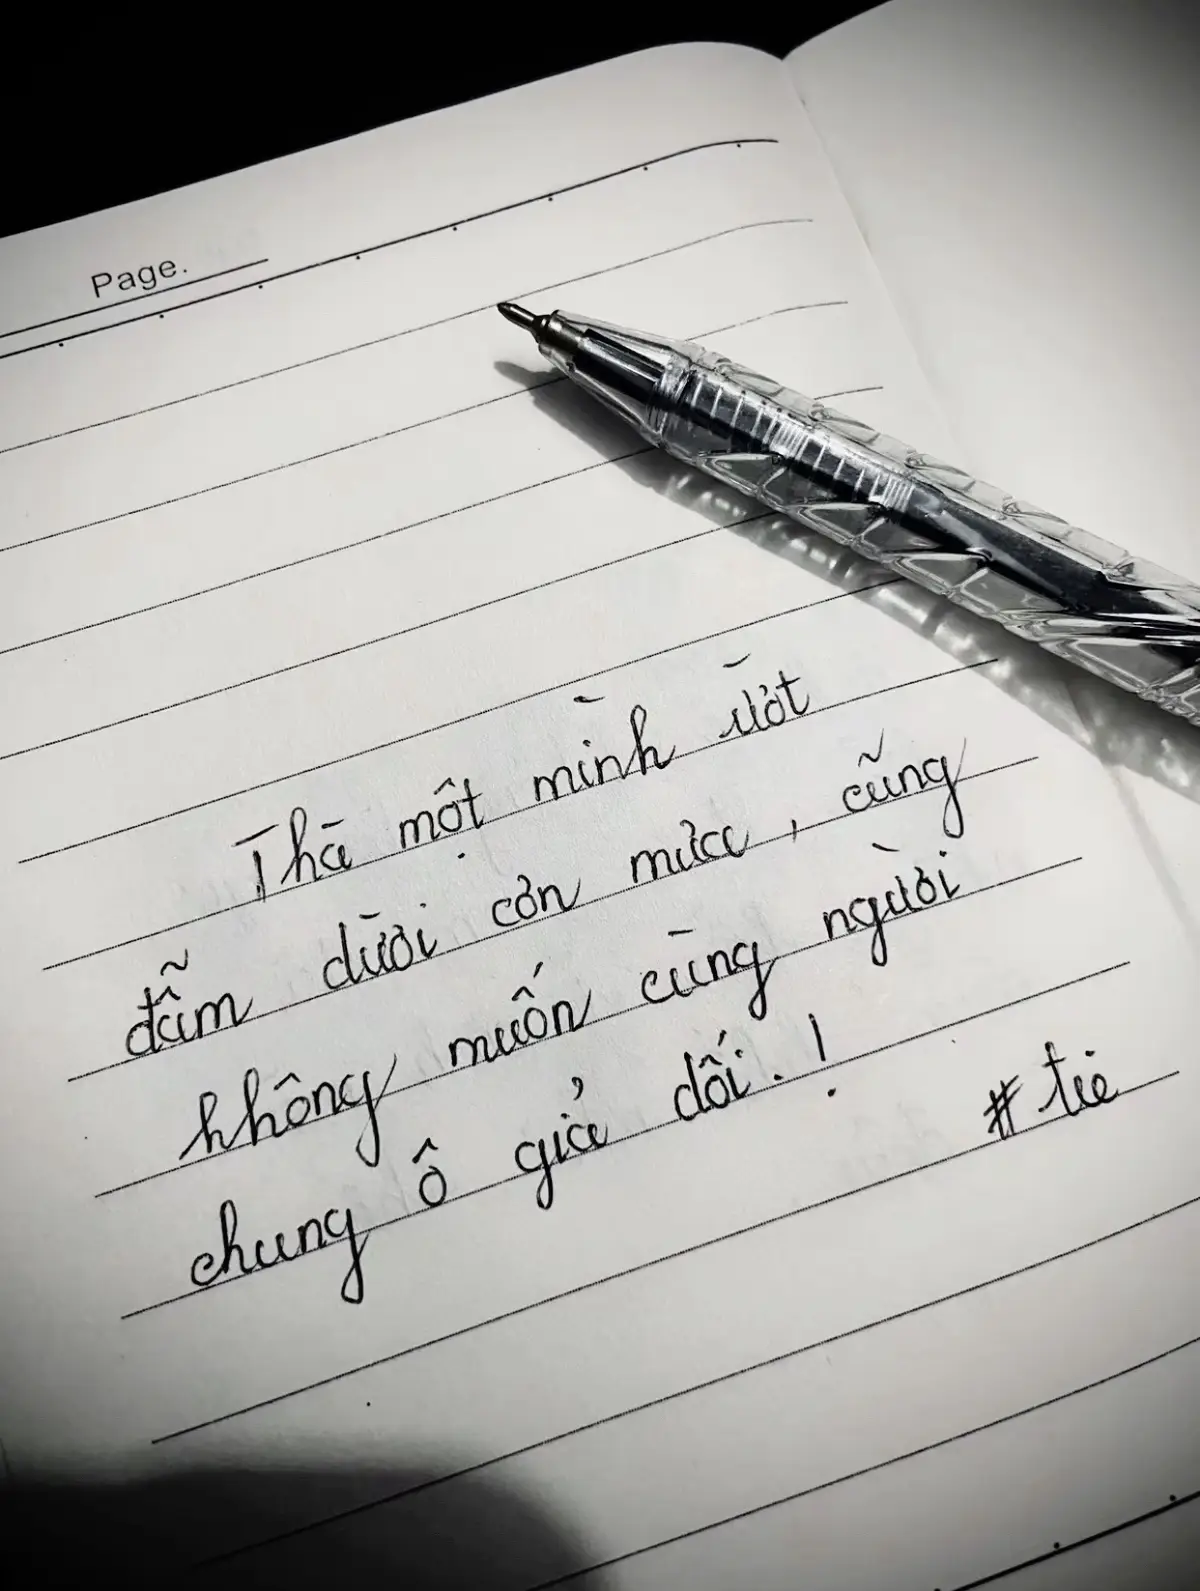 Page.
Thà một mình ướt
đẫm dưới cơn mưa, cũng
không muốn cùng người
chung ô giả dối.!
# tie